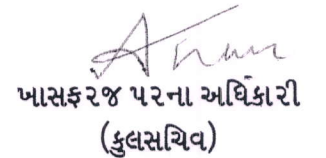 ખાસફરજ પરના અધિકારી
(કુલસચિવ)